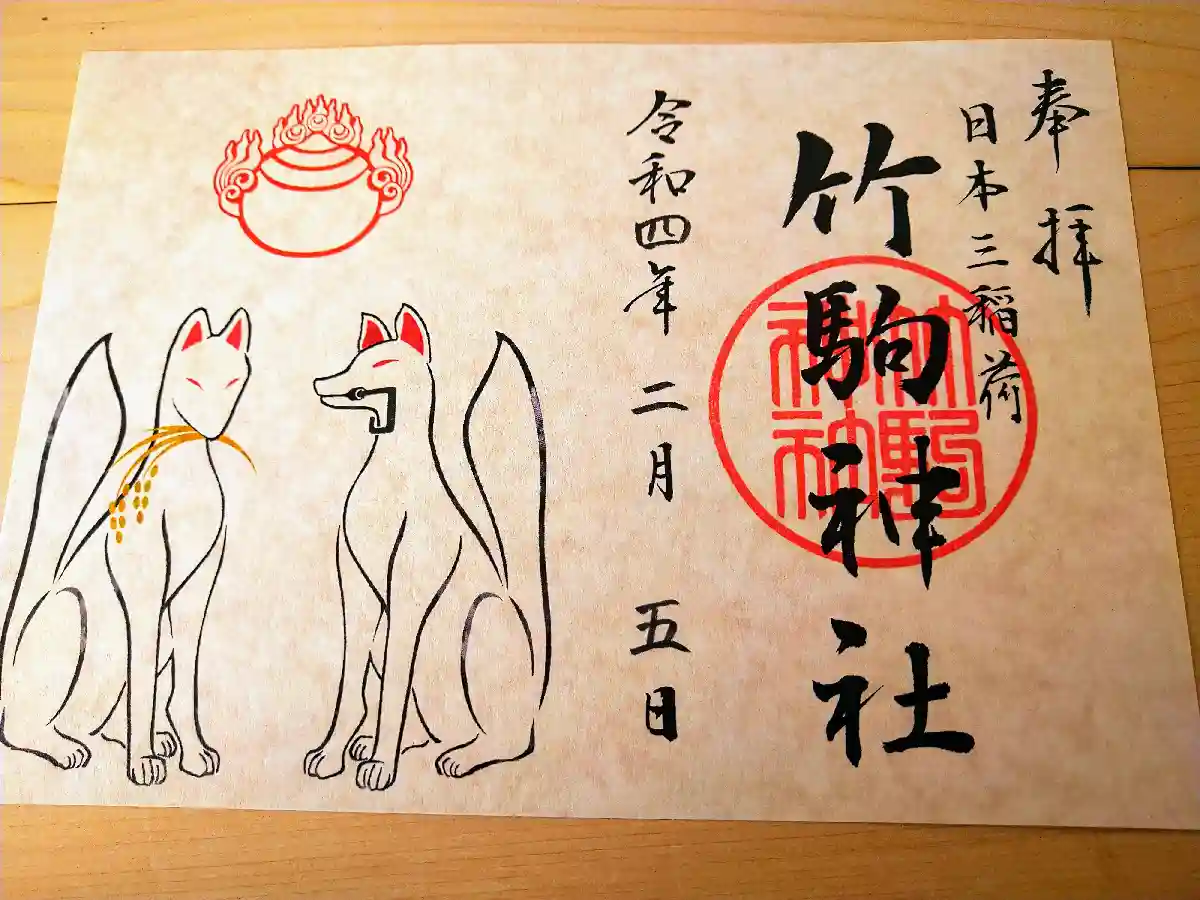 奉拝
日本三稲荷
竹駒神社
竹駒神社
令和四年二月五日